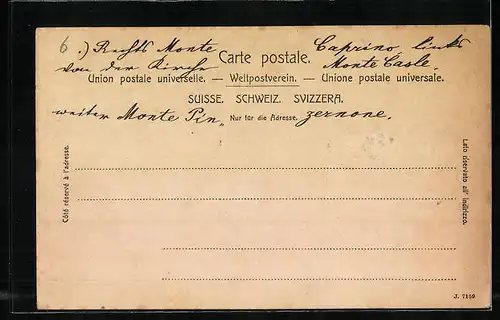 6.) Rechts Monte Caprino, links
Carte postale.
von der Kirche Monte Casle.
Union postale universelle. — Weltpostverein. — Unione postale universale.
SUISSE. SCHWEIZ. SVIZZERA.
weiter Monte Pin„ zernone.
Nur für die Adresse.
Côté réservé à l'adresse.
Lato riservato all' indirizzo.
J. 7159